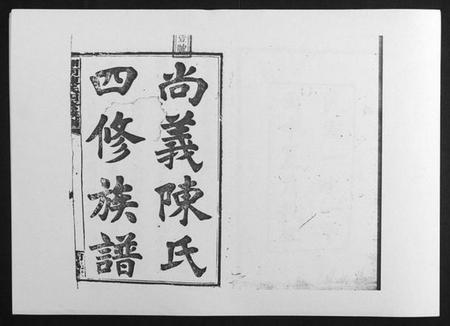 尚義陳氏
四修族譜